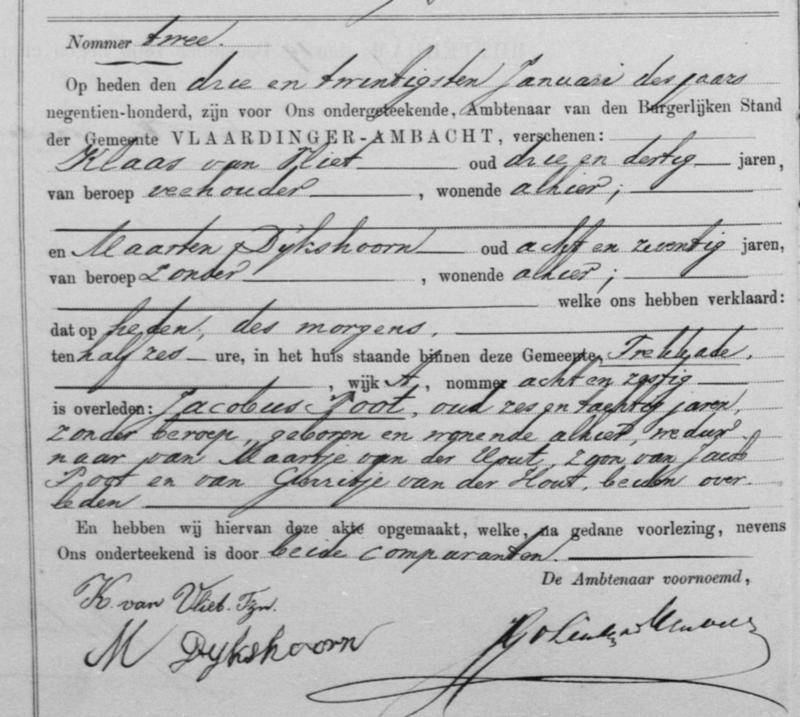 Nommer twee.
Op heden den drie en twintigsten Januari des jaars
negentien-honderd, zijn voor Ons ondergeteekende, Ambtenaar van den Burgerlijken Stand
der Gemeente VLAARDINGER-AMBACHT, verschenen:
Klaas van Vliet oud drie en dertig jaren,
van beroep veehouder, wonende alhier;
en Maarten Dijkshoorn oud acht en zeventig jaren,
van beroep zonder, wonende alhier;
welke ons hebben verklaard:
dat op heden, des morgens,
ten half zes ure, in het huis staande binnen deze Gemeente, Trekkade,
, wijk A, nommer acht en zestig
is overleden: Jacobus Poot, oud zes en tachtig jaren,
zonder beroep, geboren en wonende alhier, weduw-
naar van Maartje van der Hout, zoon van Jacob
Poot en van Gerritje van der Hout, beiden over-
leden
En hebben wij hiervan deze akte opgemaakt, welke, na gedane voorlezing, nevens
Ons onderteekend is door beide comparanten.
De Ambtenaar voornoemd,
K. van Vliet. Tzn.
M Dykshoorn